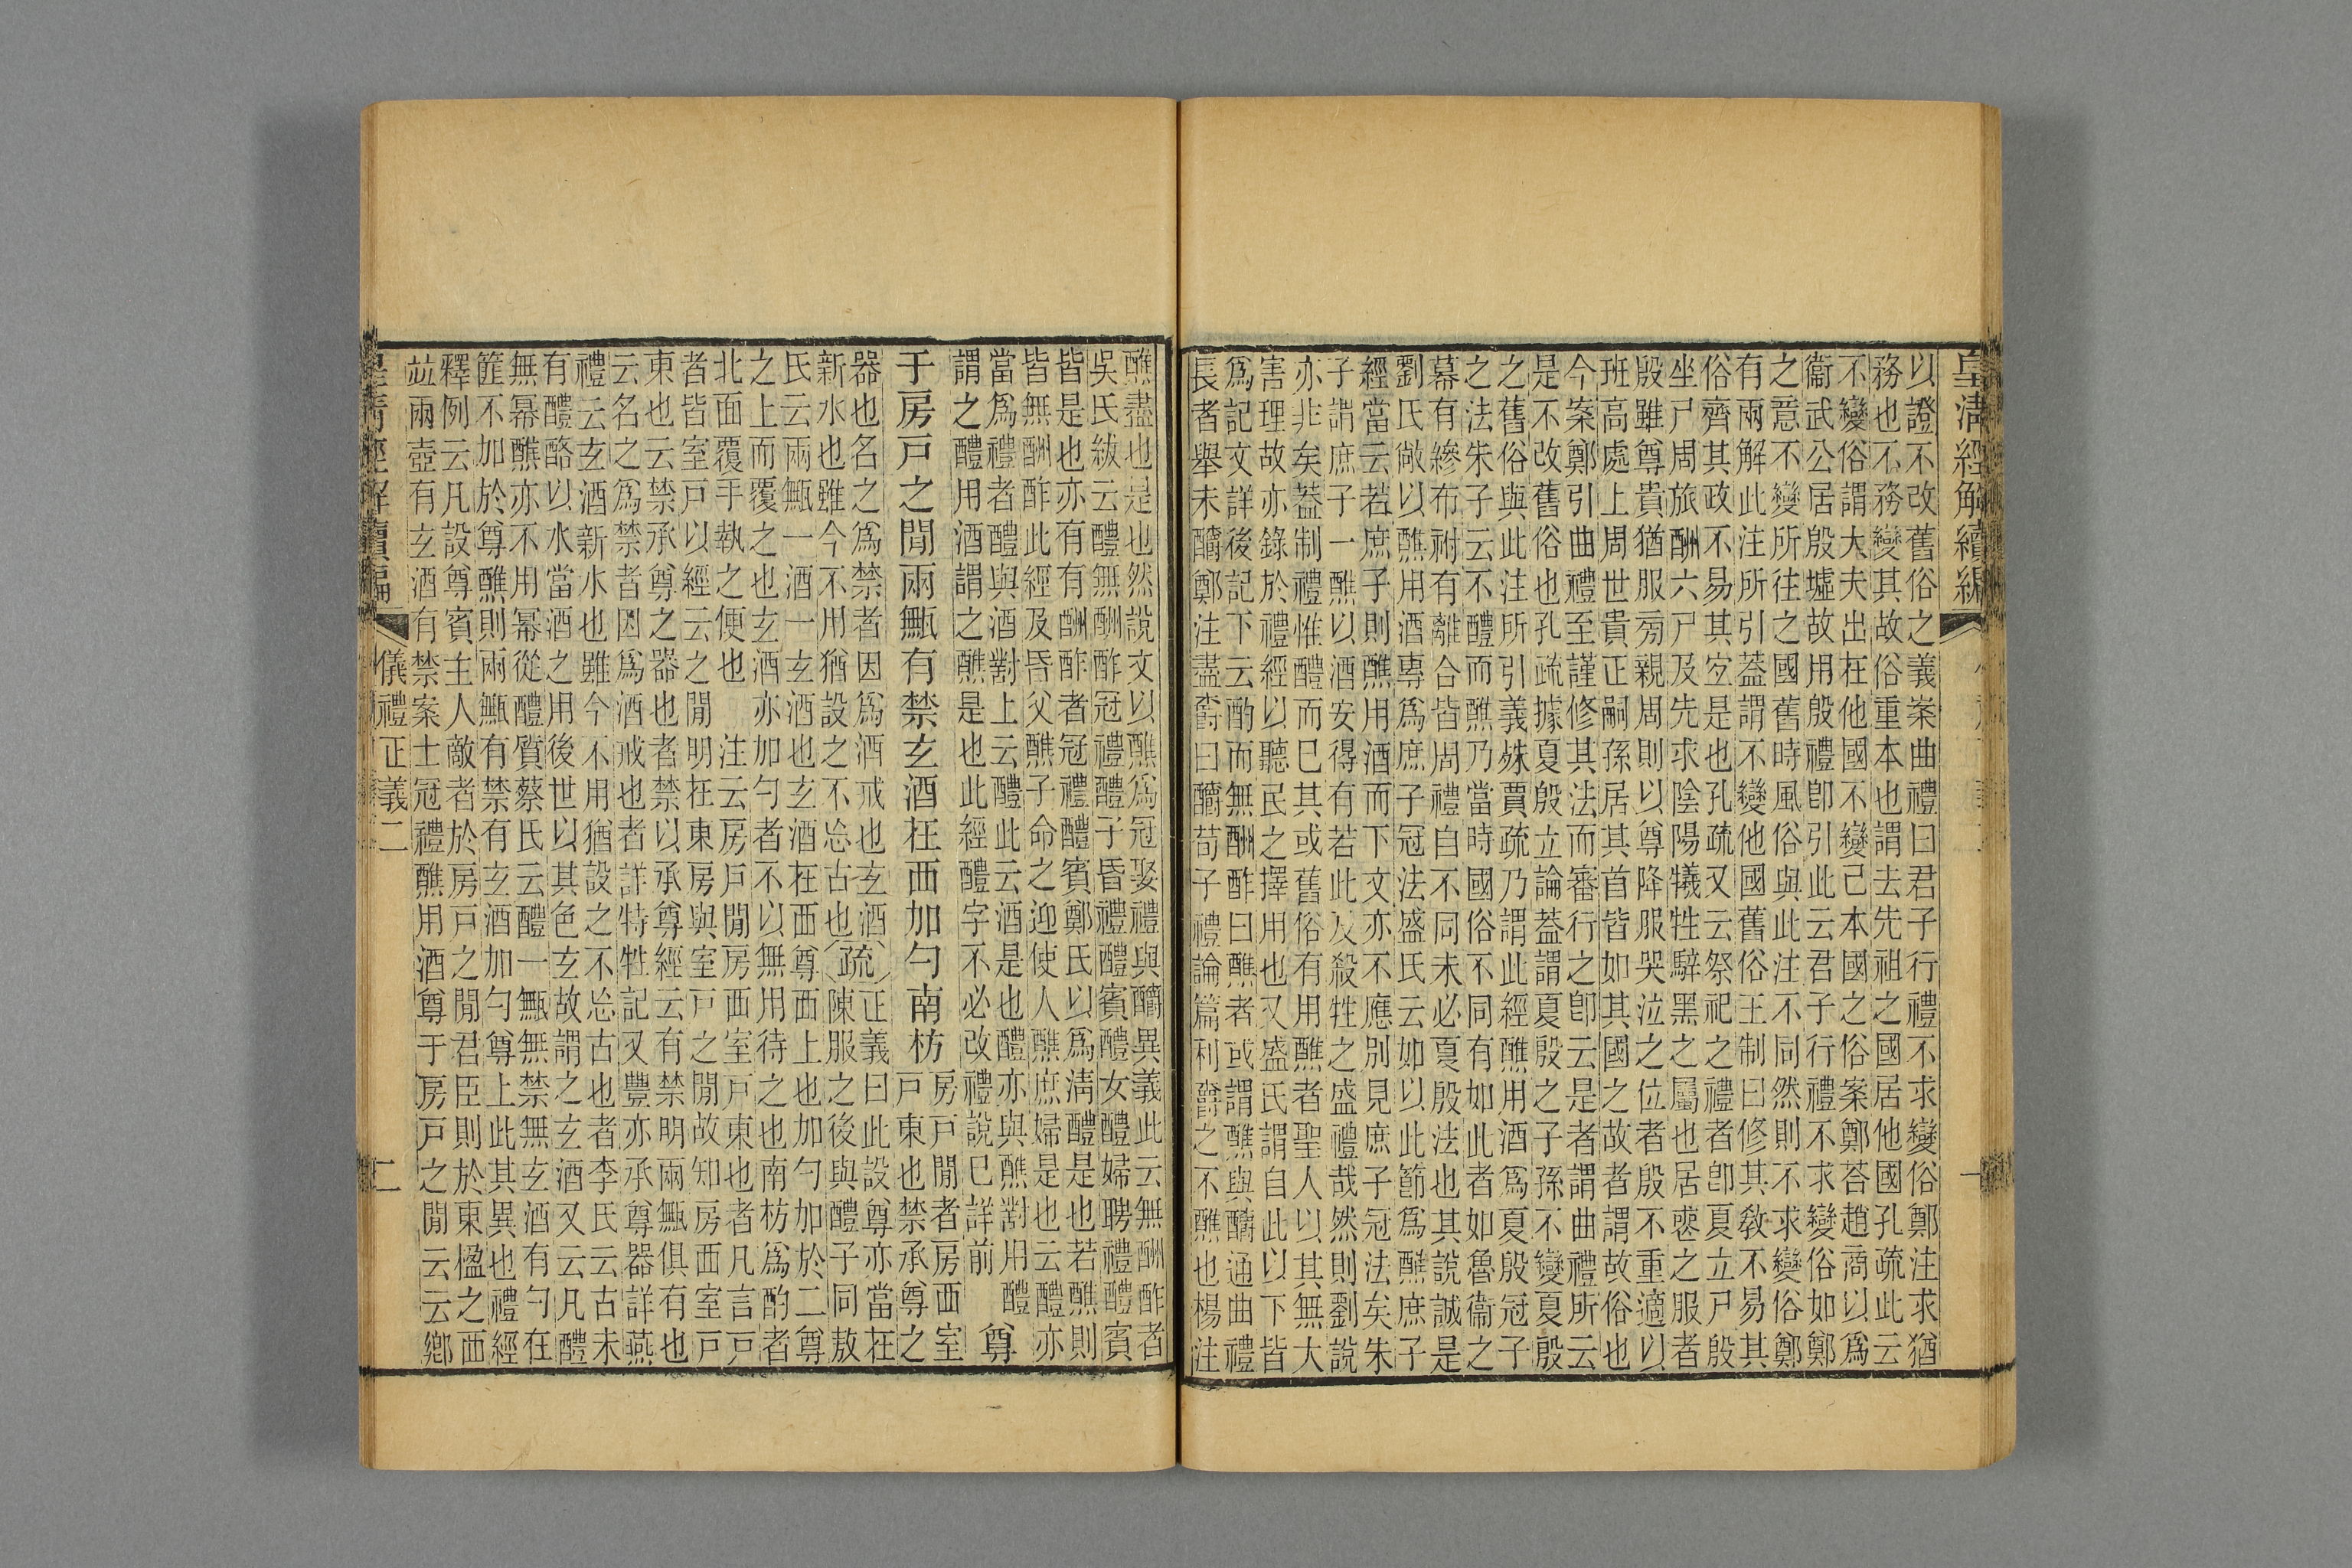 皇清經解續編
一
以證不改舊俗之義案曲禮曰君子行禮不求變俗鄭注求猶
務也不務變其故俗重本也謂去先祖之國居他國孔疏此云
不變俗謂大夫出在他國不變己本國之俗案鄭荅趙商以爲
衞武公居殷墟故用殷禮卽引此云君子行禮不求變俗如鄭
之意不變所往之國舊時風俗與此注不同然則不求變俗鄭
有兩解此注所引葢謂不變他國舊俗王制曰修其敎不易其
俗齊其政不易其宐是也孔疏又云祭祀之禮者卽夏立尸殷
坐尸周旅酬六尸及先求陰陽犧牲騂黑之屬也居喪之服者
殷雖尊貴猶服㫄親周則以尊降服哭泣之位者殷不重適以
班高處上周世貴正嗣孫居其首皆如其國之故者謂故俗也
今案鄭引曲禮至謹修其法而審行之卽云是者謂曲禮所云
是不改舊俗也孔疏據夏殷立論葢謂夏殷之子孫不變夏殷
之舊俗與此注所引義殊賈疏乃謂此經醮用酒爲夏殷冠子
之法朱子云不醴而醮乃當時國俗不同有如此者如魯衞之
幕有縿布祔有離合皆周禮自不同未必夏殷法也其說誠是
劉氏敞以醮用酒專爲庶子冠法盛氏云如以此節爲醮庶子
經當云若庶子則醮用酒而下文亦不應別見庶子冠法矣朱
子謂庶子一醮以酒安得有若此及殺牲之盛禮哉然則劉說
亦非矣葢制禮惟醴而已其或舊俗有用醮者聖人以其無大
害理故亦錄於禮經以聽民之擇用也又盛氏謂自此以下皆
爲記文詳後記下云酌而無酬酢曰醮者或謂醮與醻通曲禮
長者舉未釂鄭注盡爵曰釂荀子禮論篇利爵之不醮也楊注
醮盡也是也然說文以醮爲冠娶禮與釂異義此云無酬酢者
吳氏紱云醴無酬酢冠禮醴子昏禮醴賓醴女醴婦聘禮醴賓
皆是也亦有有酬酢者冠禮醴賓鄭氏以爲淸醴是也若醮則
皆無酬酢此經及昏父醮子命之迎使人醮庶婦是也云醴亦
當爲禮者醴與酒對上云醴此云酒是也醴亦與醮對用醴
謂之醴用酒謂之醮是也此經醴字不必改禮說已詳前　尊
于房戸之閒兩甒有禁玄酒在西加勺南枋房戸閒者房西室
戸東也禁承尊之
器也名之爲禁者因爲酒戒也玄酒
新水也雖今不用猶設之不忘古也疏正義曰此設尊亦當在
陳服之後與醴子同敖
氏云兩甒一酒一玄酒也玄酒在西尊西上也加勺加於二尊
之上而覆之也玄酒亦加勺者不以無用待之也南枋爲酌者
北面覆手執之便也　注云房戸閒房西室戸東也者凡言戸
者皆室戸以經云之閒明在東房與室戸之閒故知房西室戸
東也云禁承尊之器也者禁以承尊經云有禁明兩甒俱有也
云名之爲禁者因爲酒戒也者詳特牲記又豐亦承尊器詳燕
禮云玄酒新水也雖今不用猶設之不忘古也者李氏云古未
有醴酪以水當酒之用後世以其色玄故謂之玄酒又云凡醴
無冪醮亦不用冪從醴質蔡氏云醴一甒無禁無玄酒有勺在
篚不加於尊醮則兩甒有禁有玄酒加勺尊上此其異也禮經
釋例云凡設尊賓主人敵者於房戸之閒君臣則於東楹之西
竝兩壺有玄酒有禁案士冠禮醮用酒尊于房戸之閒云云鄉
皇清經解續編
儀禮正義二
二